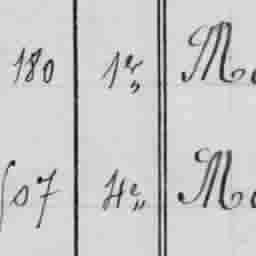 180 1er Ma
507 4e Ma